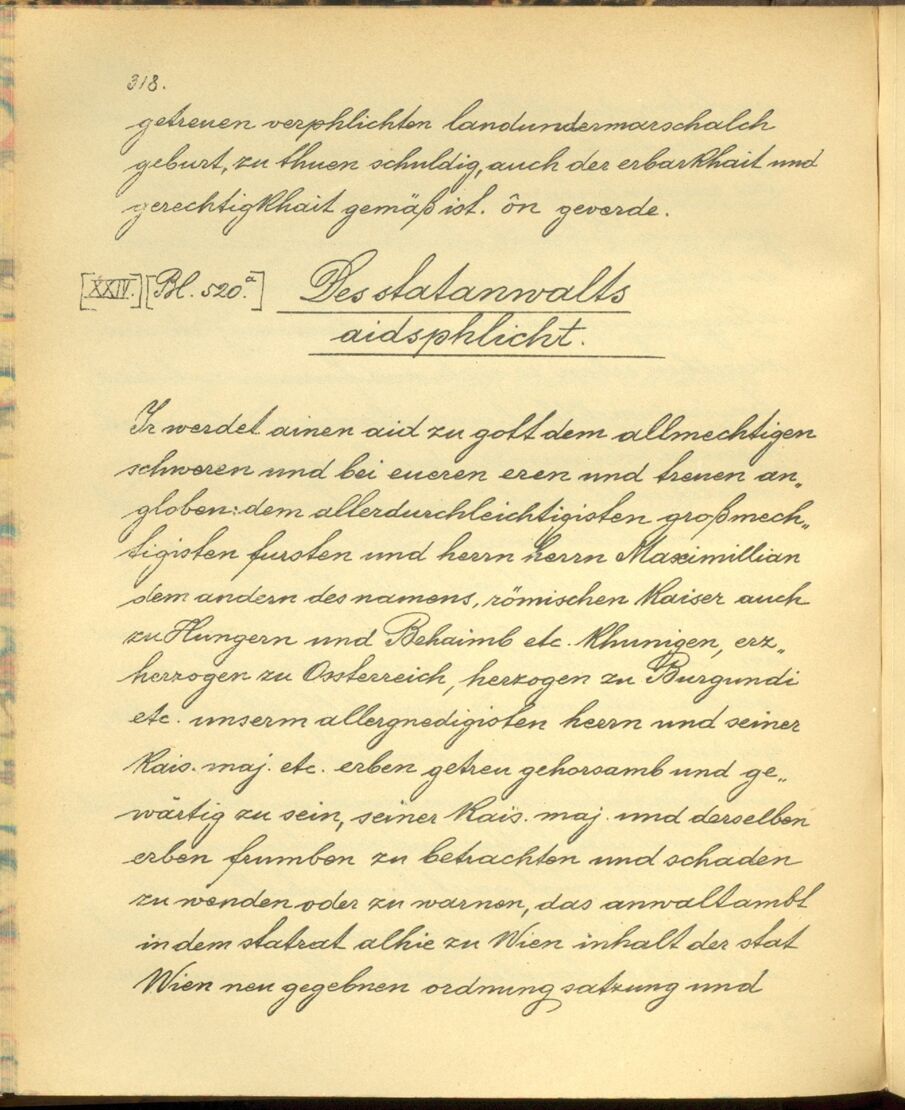 318.
getreuen verphlichten landundermarschalch
geburt, zu thuen schuldig, auch der erbarkhait und
gerechtigkhait gemäß ist. ôn geverde.
[XXIV.] [Bl. 520.a] Des statanwalts
aidsphlicht.
Ir werdet ainen aid zu gott dem allmechtigen
schweren und bei eueren eren und treuen an„
globen: dem allerdurchleichtigisten großmech„
tigisten fursten und herrn herrn Maximillian
dem andern des namens, römischen Kaiser auch
zu Hungern und Behaimb etc. khunigen, erz„
herzogen zu Ossterreich, herzogen zu Burgundi
etc. unserm allergnedigisten herrn und seiner
Kais. maj. etc. erben getreu gehorsamb und ge„
wärtig zu sein, seiner Kais. maj. und derselben
erben frumben zu betrachten und schaden
zu wenden oder zu warnen, das anwaltambt
in dem statrat alhie zu Wien inhalt der stat
Wien neu gegebnen ordnung satzung und